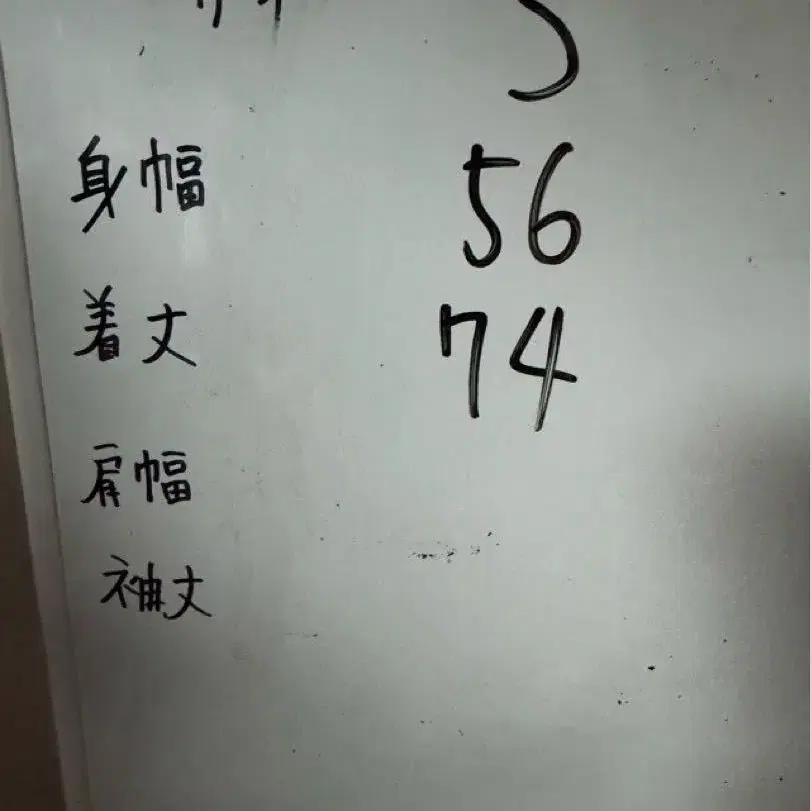 身幅 56
着丈 74
肩幅
袖丈